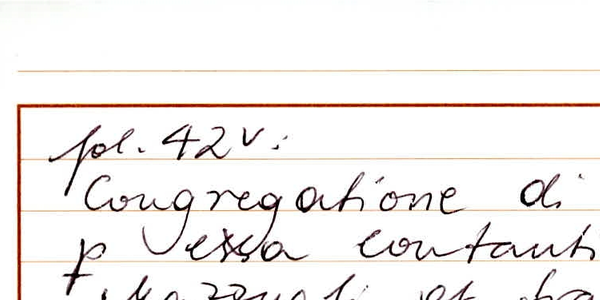 fol. 42v:
Congregatione di
p essa contanti
et